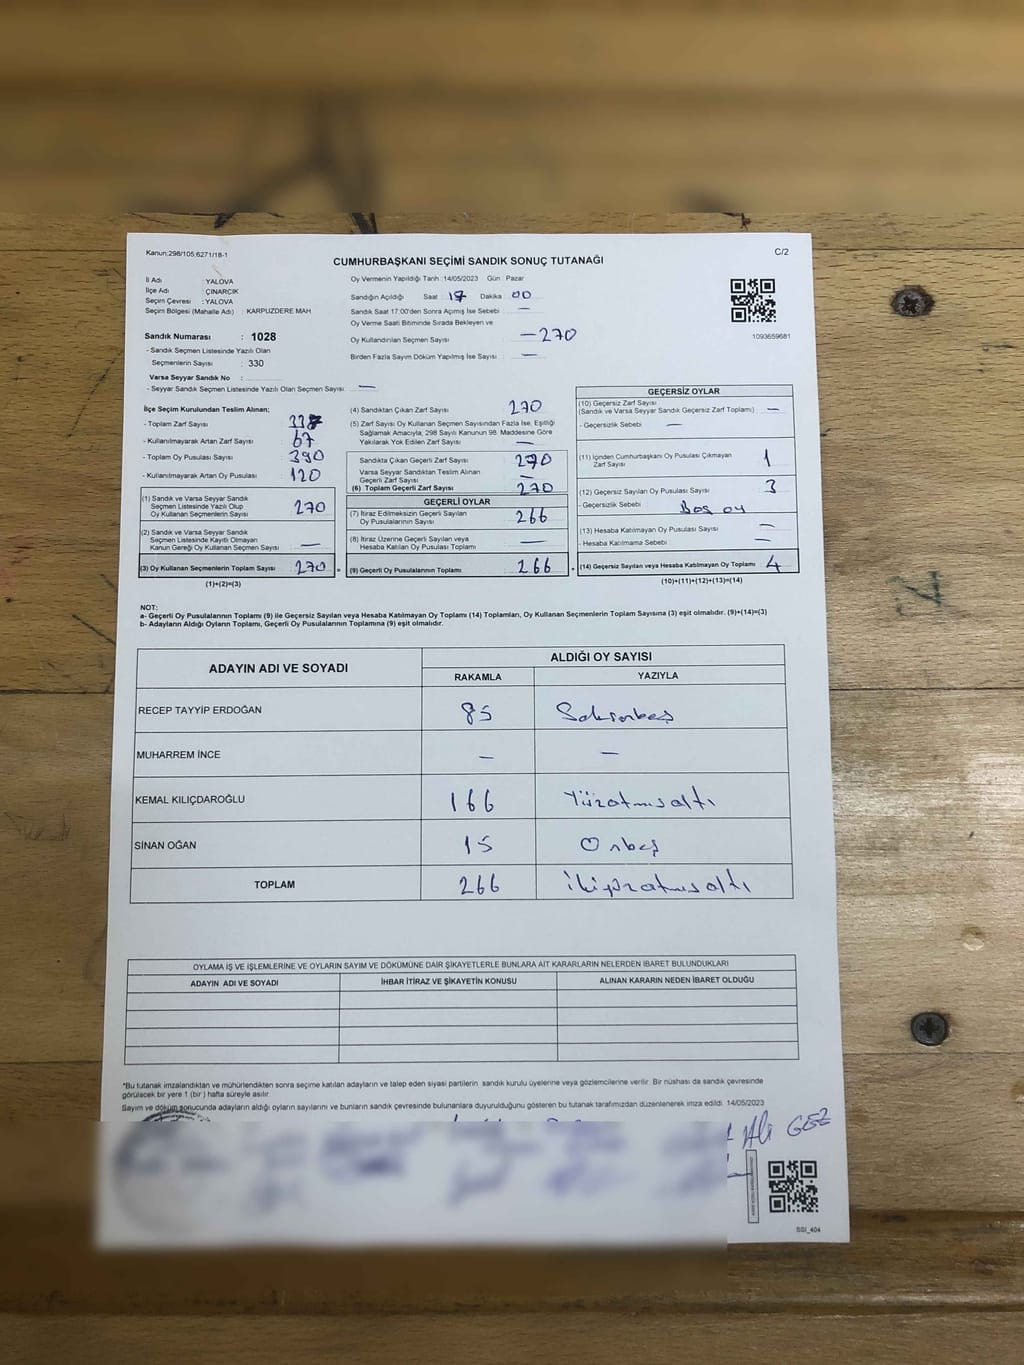 Kanun;298/105;6271/18-1
C/2
CUMHURBAŞKANI SEÇİMİ SANDIK SONUÇ TUTANAĞI
İl Adı : YALOVA
İlçe Adı : ÇINARCIK
Seçim Çevresi : YALOVA
Seçim Bölgesi (Mahalle Adı) : KARPUZDERE MAH
Sandık Numarası : 1028
- Sandık Seçmen Listesinde Yazılı Olan
Seçmenlerin Sayısı : 330
Varsa Seyyar Sandık No :
- Seyyar Sandık Seçmen Listesinde Yazılı Olan Seçmen Sayısı: —
Oy Vermenin Yapıldığı Tarih :14/05/2023 Gün : Pazar
Sandığın Açıldığı Saat 17 Dakika 00
Sandık Saat 17:00'den Sonra Açımış İse Sebebi —
Oy Verme Saati Bitiminde Sırada Bekleyen ve
Oy Kullandırılan Seçmen Sayısı — 270
Birden Fazla Sayım Döküm Yapılmış İse Sayısı —
1093659681
İlçe Seçim Kurulundan Teslim Alınan;
- Toplam Zarf Sayısı
- Kullanılmayarak Artan Zarf Sayısı 67
- Toplam Oy Pusulası Sayısı 390
- Kullanılmayarak Artan Oy Pusulası 120
(1) Sandık ve Varsa Seyyar Sandık
Seçmen Listesinde Yazılı Olup
Oy Kullanan Seçmenlerin Sayısı 270
(2) Sandık ve Varsa Seyyar Sandık
Seçmen Listesinde Kayıtlı Olmayan
Kanun Gereği Oy Kullanan Seçmen Sayısı —
(3) Oy Kullanan Seçmenlerin Toplam Sayısı 270 =
(1)+(2)=(3)
(4) Sandıktan Çıkan Zarf Sayısı 270
(5) Zarf Sayısı Oy Kullanan Seçmen Sayısından Fazla İse, Eşitliği
Sağlamak Amacıyla, 298 Sayılı Kanunun 98. Maddesine Göre
Yakılarak Yok Edilen Zarf Sayısı —
Sandıkta Çıkan Geçerli Zarf Sayısı 270
Varsa Seyyar Sandıktan Teslim Alınan
Geçerli Zarf Sayısı —
(6) Toplam Geçerli Zarf Sayısı 270
GEÇERLİ OYLAR
(7) İtiraz Edilmeksizin Geçerli Sayılan
Oy Pusulalarının Sayısı 266
(8) İtiraz Üzerine Geçerli Sayılan veya
Hesaba Katılan Oy Pusulası Toplamı —
(9) Geçerli Oy Pusulalarının Toplamı 266 +
GEÇERSİZ OYLAR
(10) Geçersiz Zarf Sayısı
(Sandık ve Varsa Seyyar Sandık Geçersiz Zarf Toplamı) —
- Geçersizlik Sebebi —
(11) İçinden Cumhurbaşkanı Oy Pusulası Çıkmayan
Zarf Sayısı 1
(12) Geçersiz Sayılan Oy Pusulası Sayısı 3
- Geçersizlik Sebebi Boş oy
(13) Hesaba Katılmayan Oy Pusulası Sayısı —
- Hesaba Katılmama Sebebi —
(14) Geçersiz Sayılan veya Hesaba Katılmayan Oy Toplamı 4
(10)+(11)+(12)+(13)=(14)
NOT:
a- Geçerli Oy Pusulalarının Toplamı (9) ile Geçersiz Sayılan veya Hesaba Katılmayan Oy Toplamı (14) Toplamları, Oy Kullanan Seçmenlerin Toplam Sayısına (3) eşit olmalıdır. (9)+(14)=(3)
b- Adayların Aldığı Oyların Toplamı, Geçerli Oy Pusulalarının Toplamına (9) eşit olmalıdır.
ADAYIN ADI VE SOYADI
ALDIĞI OY SAYISI
RAKAMLA YAZIYLA
RECEP TAYYİP ERDOĞAN 85 Seksenbeş
MUHARREM İNCE — —
KEMAL KILIÇDAROĞLU 166 Yüzatmışaltı
SİNAN OĞAN 15 Onbeş
TOPLAM 266 ikiyüzatmışaltı
OYLAMA İŞ VE İŞLEMLERİNE VE OYLARIN SAYIM VE DÖKÜMÜNE DAİR ŞİKAYETLERLE BUNLARA AİT KARARLARIN NELERDEN İBARET BULUNDUKLARI
ADAYIN ADI VE SOYADI İHBAR İTİRAZ VE ŞİKAYETİN KONUSU ALINAN KARARIN NEDEN İBARET OLDUĞU
*Bu tutanak imzalandıktan ve mühürlendikten sonra seçime katılan adayların ve talep eden siyasi partilerin sandık kurulu üyelerine veya gözlemcilerine verilir. Bir nüshası da sandık çevresinde
görülecek bir yere 1 (bir ) hafta süreyle asılır.
Sayım ve döküm sonucunda adayların aldığı oyların sayılarını ve bunların sandık çevresinde bulunanlara duyurulduğunu gösteren bu tutanak tarafımızdan düzenlenerek imza edildi. 14/05/2023
Ali GEZ
SSI_404